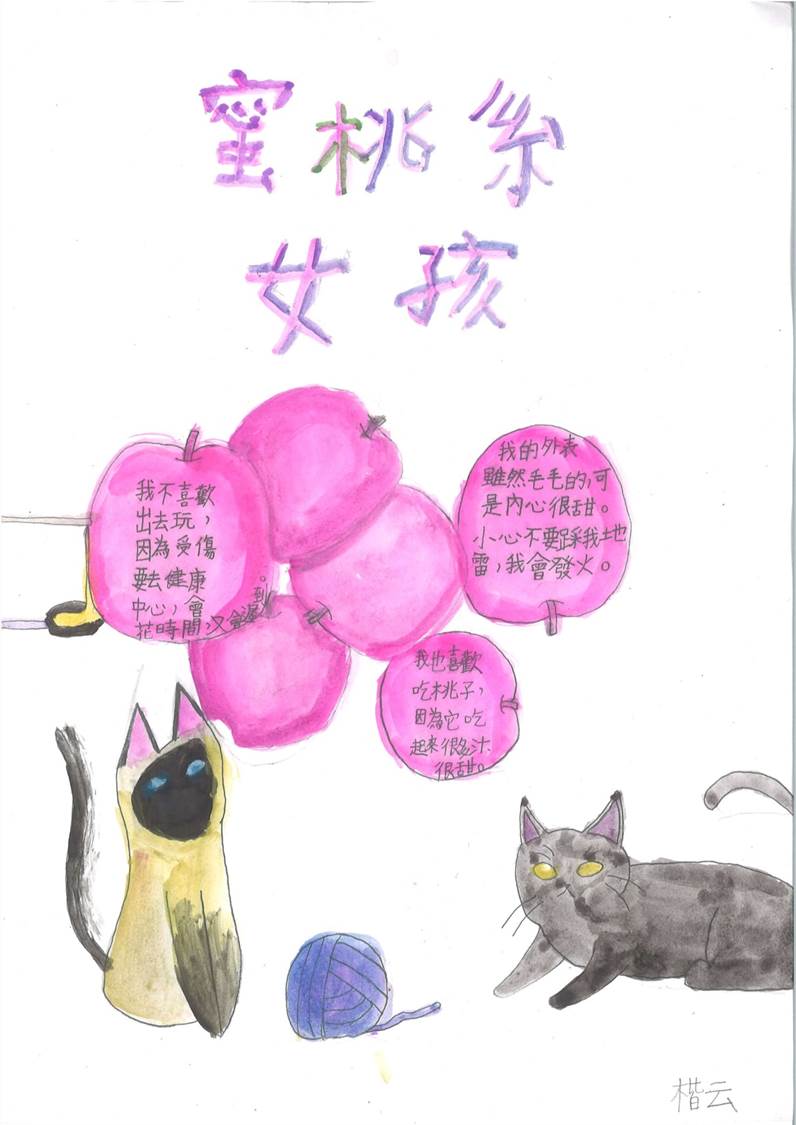 蜜桃系
女孩
我不喜歡
出去玩，
因為受傷
要去健康
中心，會
花時間，又會遲到。
我的外表
雖然毛毛的，可
是內心很甜。
小心不要踩我地
雷，我會發火。
我也喜歡
吃桃子，
因為它吃
起來很多汁
很甜。
楷云